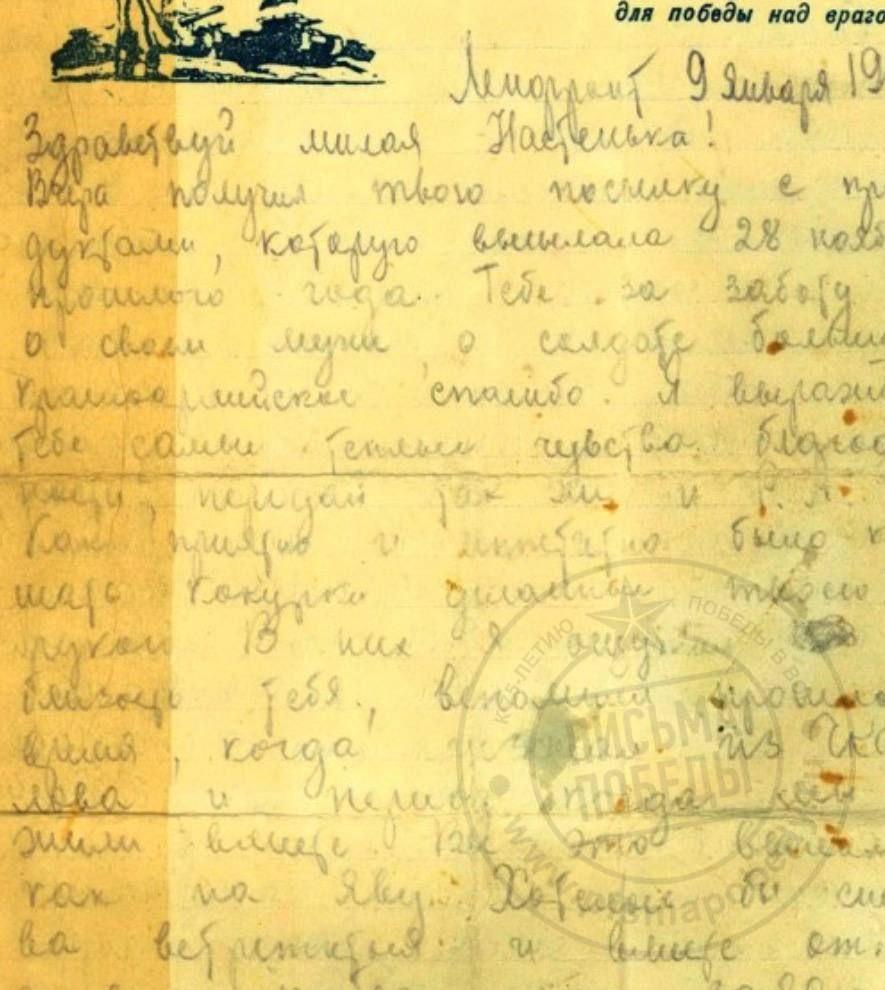 для победы над враго
Ленфронт 9 января 19
Здравствуй милая Настенька!
Вчера получил твою посылку с пр
дуктами, которую высылала 28 нояб
прошлого года. Тебе за заботу
о своем муже, о солдате больш
красноармейское спасибо. Я выражаю
тебе самые теплые чувства благод
ности, передай так же и
Как приятно и было к
шать кокурки деланные твоею
рукой В них я ощутил
близость тебя, вспомнил прошло
время, когда из Чк
лова и период когда
жили вместе. Все это
как на яву. Хотелось бы сно
ва встретиться и вместе
К 65-ЛЕТИЮ ПОБЕДЫ В
ПИСЬМА
ПОБЕДЫ